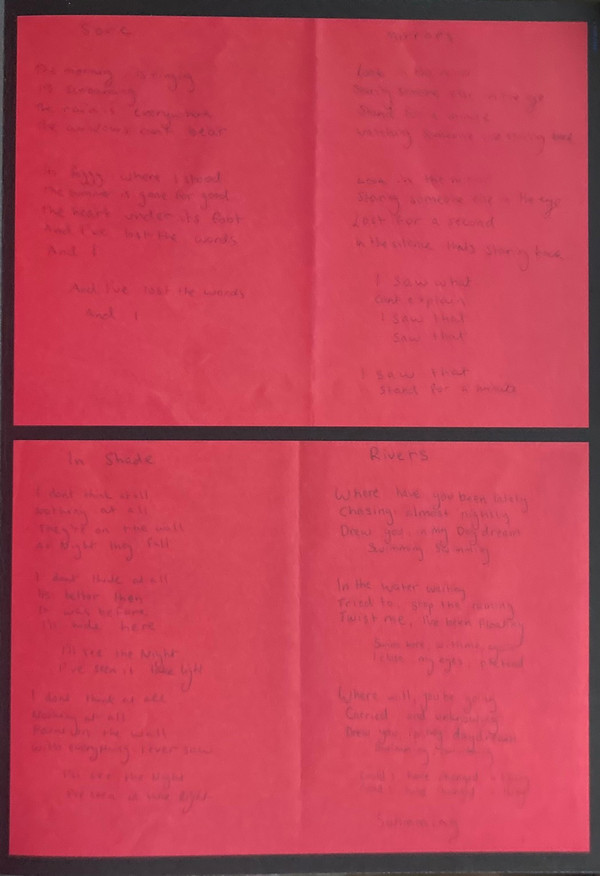 The morning is
is screaming
The rain is everywhere
The windows can't bear
It's foggy where I stood
The is gone for good
The heart under its foot
And I've lost the words
And I
And I've lost the words
And I
Mirrors
Look in the mirror
Staring someone else in the eye
Stand for a minute
Watching someone staring back
Look in the mirror
Staring someone else in the eye
Lost for a second
In the silence that's staring back
I saw what
Can't explain
I saw that
Saw that
I saw that
Stand for a minute
In Shade
I don't think at all
Nothing at all
on the wall
or Night may fall
I don't think at all
It's better then
It was before
I'll hide here
I'll see the Night
I've seen it like light
I don't think at all
Nothing at all
the wall
With everything I ever saw
I'll see the Night
I've seen it like light
Rivers
Where have you been lately
Chasing almost nightly
Draw you in my Daydream
Swimming Swimming
In the water waiting
Tried to stop the raining
Twist me, I've been floating
Somewhere, within, again
I close my eyes, pretend
Where will you be going
Carried and unknowing
Draw you in my daydream
Swimming Swimming
Swimming